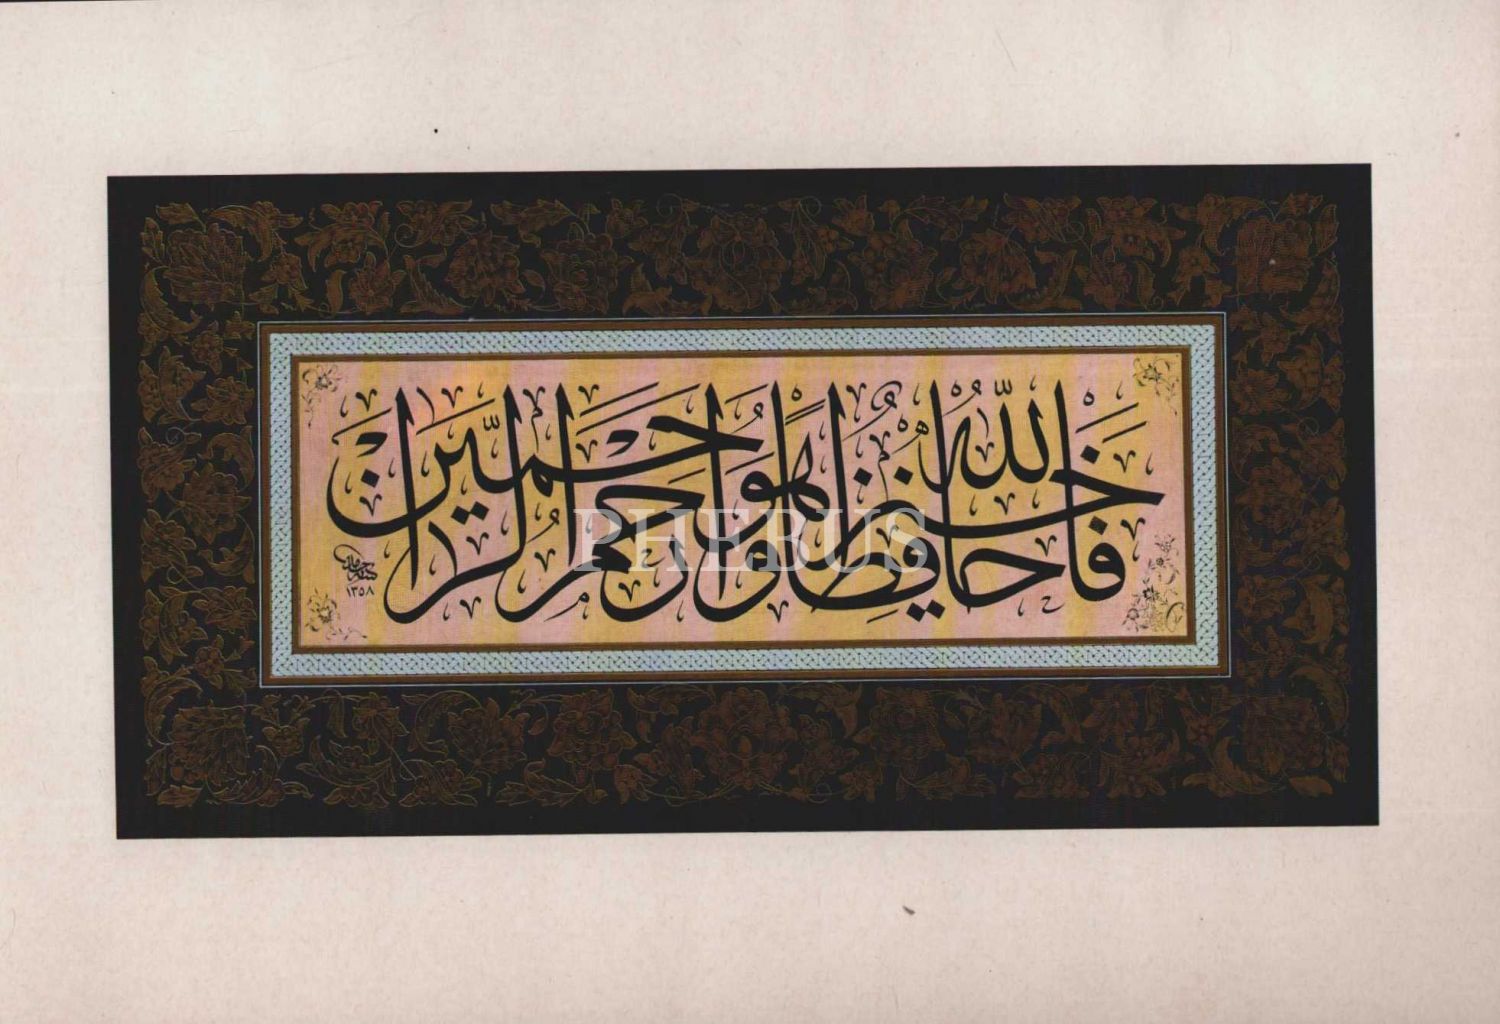 فَاللّٰهُ خَيْرٌ حَافِظًا وَهُوَ أَرْحَمُ الرَّاحِمِينَ
١٣٥٨
PHEBUS